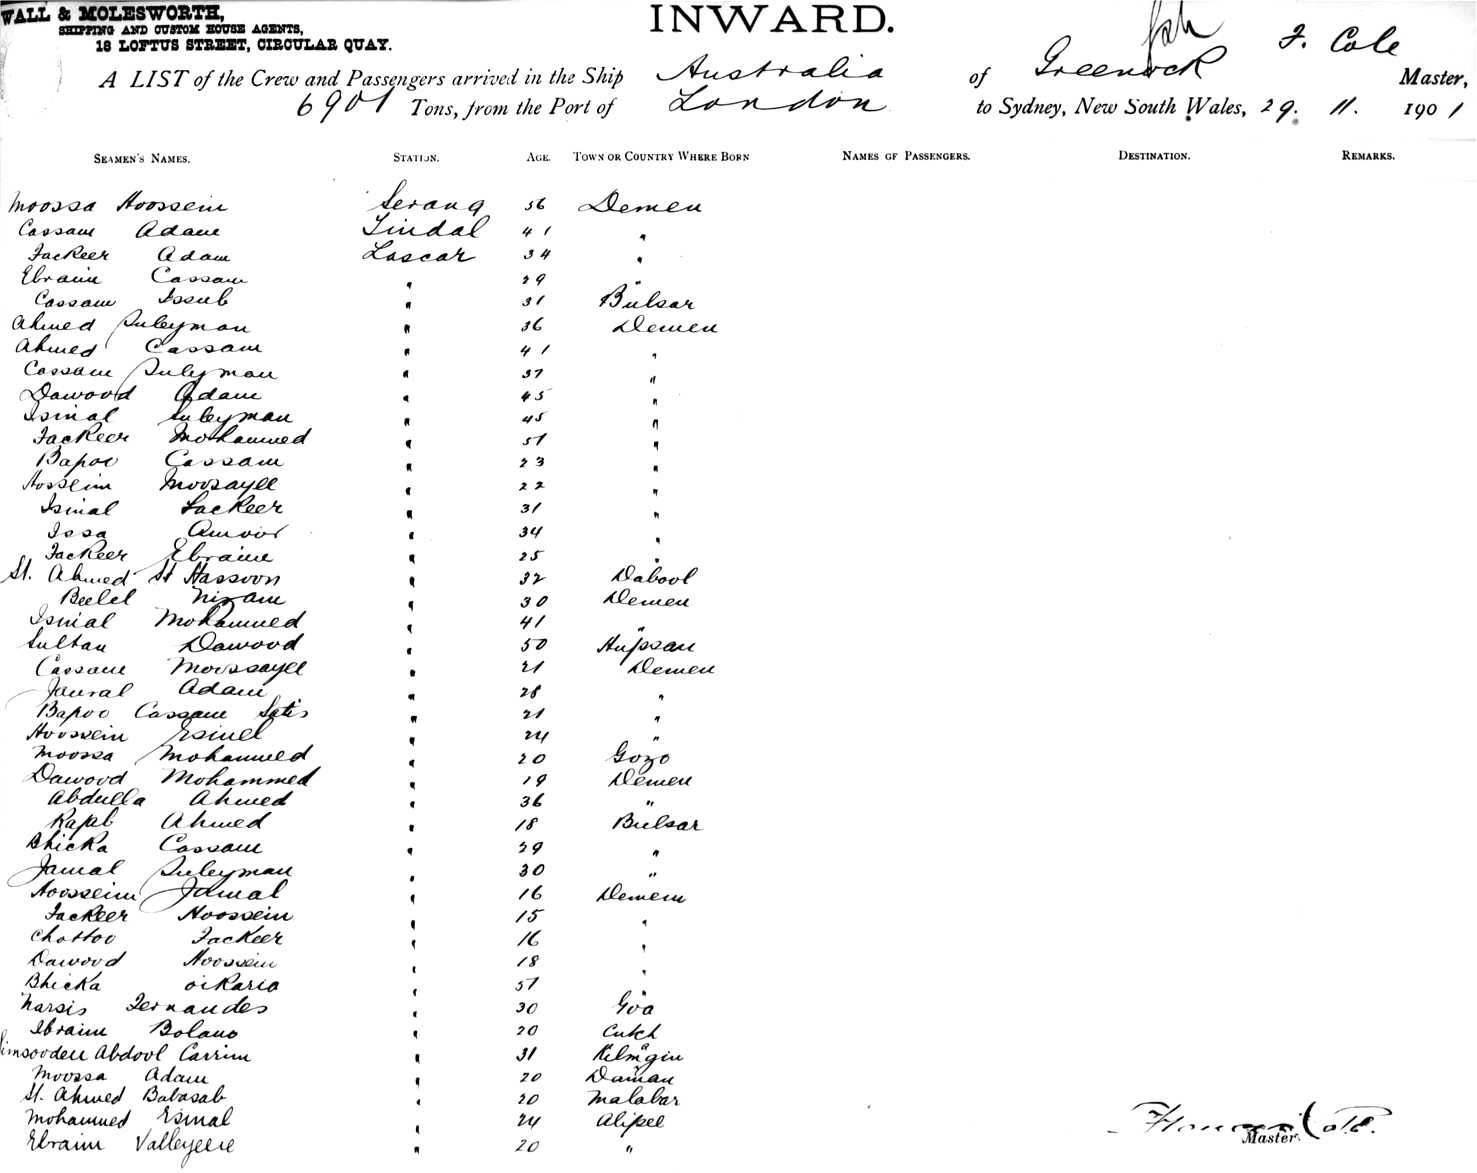 WALL & MOLESWORTH,
SHIPPING AND CUSTOM HOUSE AGENTS,
18 LOFTUS STREET, CIRCULAR QUAY.
INWARD.
A LIST of the Crew and Passengers arrived in the Ship Australia of Greenock F. Cole Master,
6901 Tons, from the Port of London to Sydney, New South Wales, 29. 11. 1901
SEAMEN'S NAMES. STATION. AGE. TOWN OR COUNTRY WHERE BORN NAMES OF PASSENGERS. DESTINATION. REMARKS.
Moossa Hoossein Serang 56 Demen
Cassam Adam Tindal 41 "
Fackeer Adam Lascar 34 "
Ebraim Cassam " 29 "
Cassam Issub " 31 Bulsar
Ahmed Suleyman " 36 Demen
Ahmed Cassam " 41 "
Cassam Suleyman " 37 "
Dawood Adam " 45 "
Ismal Suleyman " 45 "
Fackeer Mohammed " 51 "
Bapoo Cassam " 23 "
Hossein Moosayee " 22 "
Ismal Fackeer " 31 "
Issa Amoor " 34 "
Fackeer Ebraim " 25 "
St. Ahmed St Hassoon " 32 Dabool
Beelel Nizam " 30 Demen
Ismal Mohammed " 41 "
Sultan Dawood " 50 Hupsan
Cassam Moossayee " 21 Demen
Jamal Adam " 28 "
Bapoo Cassam " 21 "
Hoossein Esmel " 24 "
Moossa Mohammed " 20 Gozo
Dawood Mohammed " 19 Demen
Abdulla Ahmed " 36 "
Rajeb Ahmed " 18 Bulsar
Bhicka Cassam " 29 "
Jamal Suleyman " 30 "
Hoosseim Jamal " 16 Demem
Fackeer Hoossein " 15 "
Chottoo Fackeer " 16 "
Dawood Hoossein " 18 "
Bhicka oikaria " 51 "
Narsis Fernandes " 30 Goa
Ibraim Bolano " 20 Cutch
Abdool Carrim " 31
Moossa Adam " 20 Daman
St. Ahmed Babasab " 20 Malabar
Mohammed Esmal " 24 Alipee
Ebraim Valleyeere " 20 "
Master.